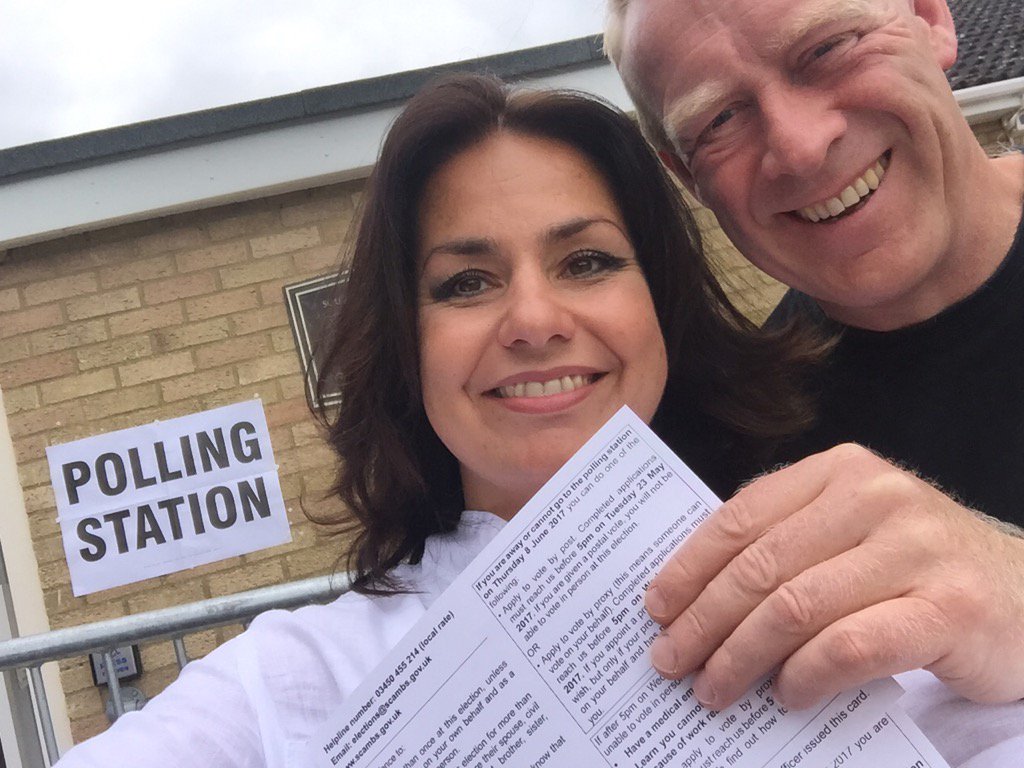 POLLING
STATION
Helpline number: 03450 455 214 (local rate)
Email: elections@scambs.gov.uk
www.scambs.gov.uk
than once at this election, unless
on your own behalf and as a
election for more than
their spouse, civil
brother, sister,
know that
If you are away or cannot go to the polling station
on Thursday 8 June 2017 you can do one of the
following:
• Apply to vote by post. Completed applications
must reach us before 5pm on Tuesday 23 May
2017. If you are given a postal vote, you will not be
able to vote in person at this election.
OR
• Apply to vote by proxy (this means someone can
vote on your behalf). Completed applications must
reach us before 5pm on
2017. If you appoint a
wish, but only if your
on your behalf and has
you.
If after 5pm on
unable to vote in person
Have a medical
Learn you cannot
because of work
apply to vote by
must reach us before 5
find out how
Officer issued this card.
2017 you are